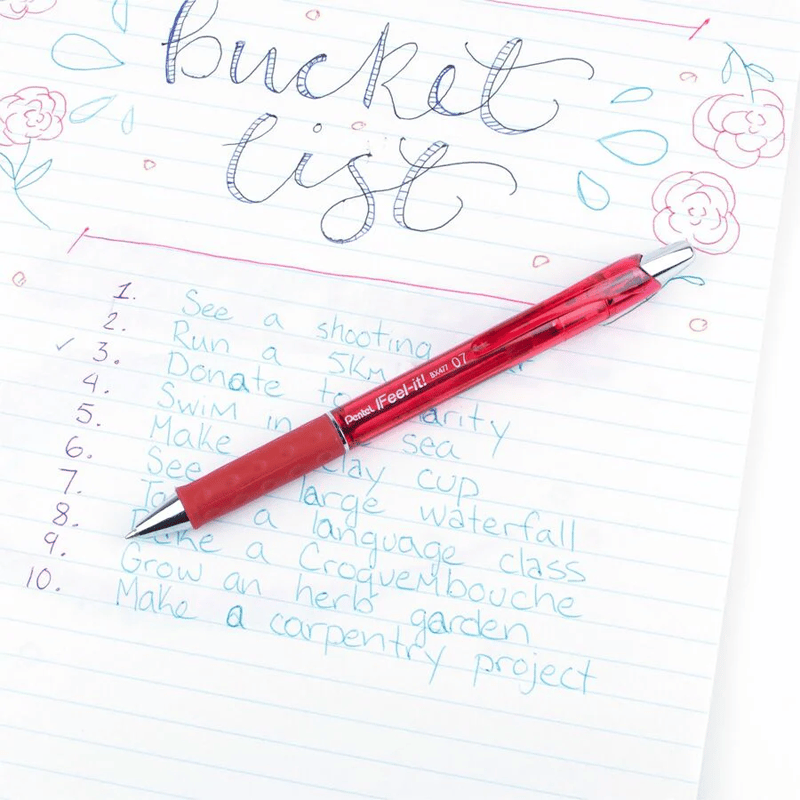 bucket
list
1. See a shooting
2. Run a 5Km
✓ 3. Donate to arity
4. Swim in sea
5. Make lay cup
6. See large waterfall
7. a language class
8. a Croquembouche
9. Grow an herb garden
10. Make a carpentry project
Pentel iFeel-it! BX477 07